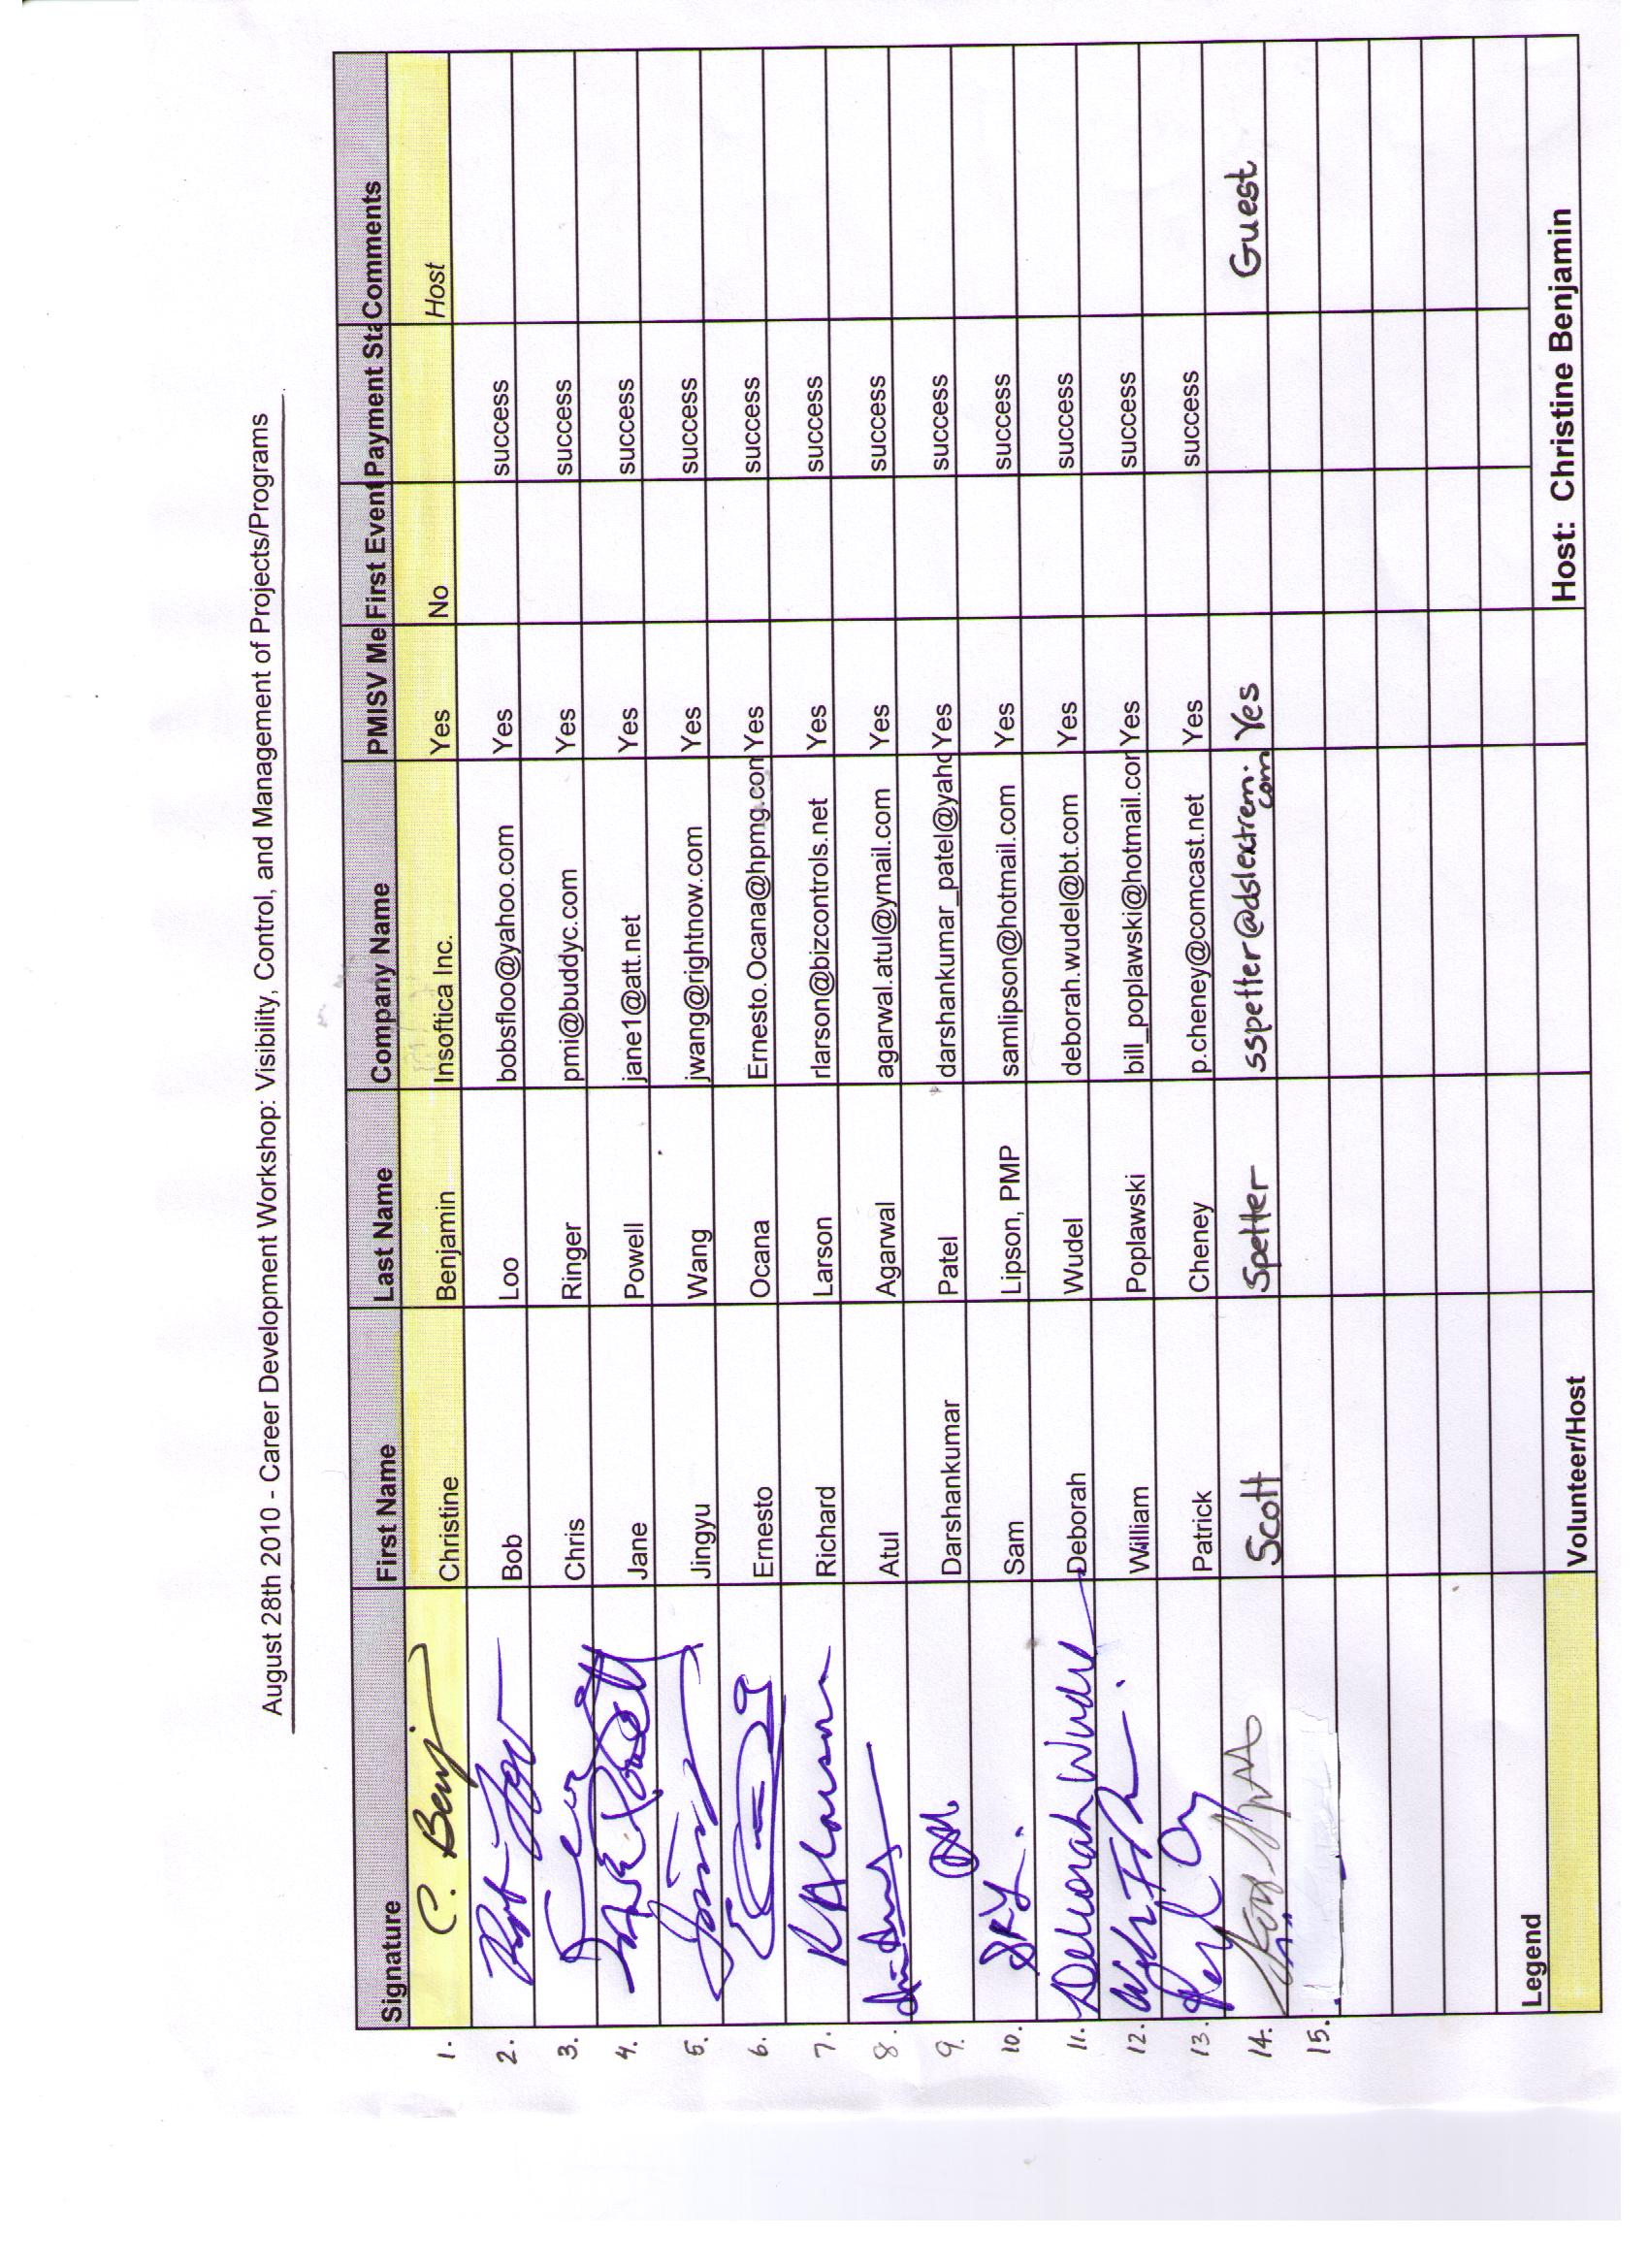 August 28th 2010 - Career Development Workshop: Visibility, Control, and Management of Projects/Programs
Signature First Name Last Name Company Name PMISV Me First Event Payment Sta Comments
1. C. Benj Christine Benjamin Insoftica Inc. Yes No Host
2. Bob Loo bobsfloo@yahoo.com Yes success
3. Chris Ringer pmi@buddyc.com Yes success
4. Jane Powell jane1@att.net Yes success
5. Jingyu Wang jwang@rightnow.com Yes success
6. Ernesto Ocana Ernesto.Ocana@hpmg.com Yes success
7. RALarson Richard Larson rlarson@bizcontrols.net Yes success
8. Atul Agarwal agarwal.atul@ymail.com Yes success
9. Darshankumar Patel darshankumar_patel@yaho Yes success
10. Sam Lipson, PMP samlipson@hotmail.com Yes success
11. Deborah Wudel Deborah Wudel deborah.wudel@bt.com Yes success
12. William Poplawski bill_poplawski@hotmail.cor Yes success
13. Patrick Cheney p.cheney@comcast.net Yes success
14. Scott Spetter sspetter@dslextrem.com Yes Guest
15.
Legend
Volunteer/Host Host: Christine Benjamin